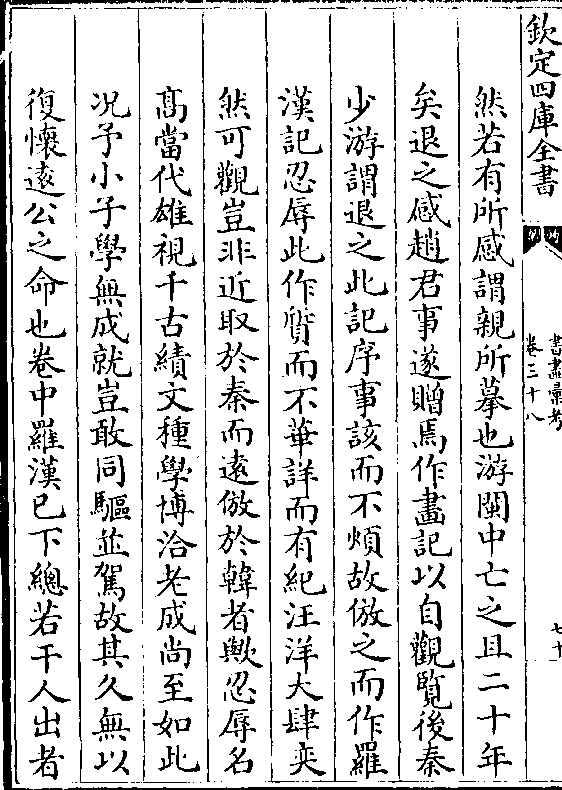 欽定四庫全書
書畫彙考
卷三十八
七十
然若有所感謂親所摹也游閩中亡之且二十年
矣退之感趙君事遂贈焉作畫記以自觀覽後秦
少游謂退之此記序事該而不煩故倣之而作羅
漢記忍辱此作質而不華詳而有紀汪洋大肆奕
然可觀豈非近取於秦而遠倣於韓者歟忍辱名
髙當代雄視千古績文種學博洽老成尚至如此
况予小子學無成就豈敢同驅並駕故其久無以
復懷遠公之命也卷中羅漢已下總若干人出者